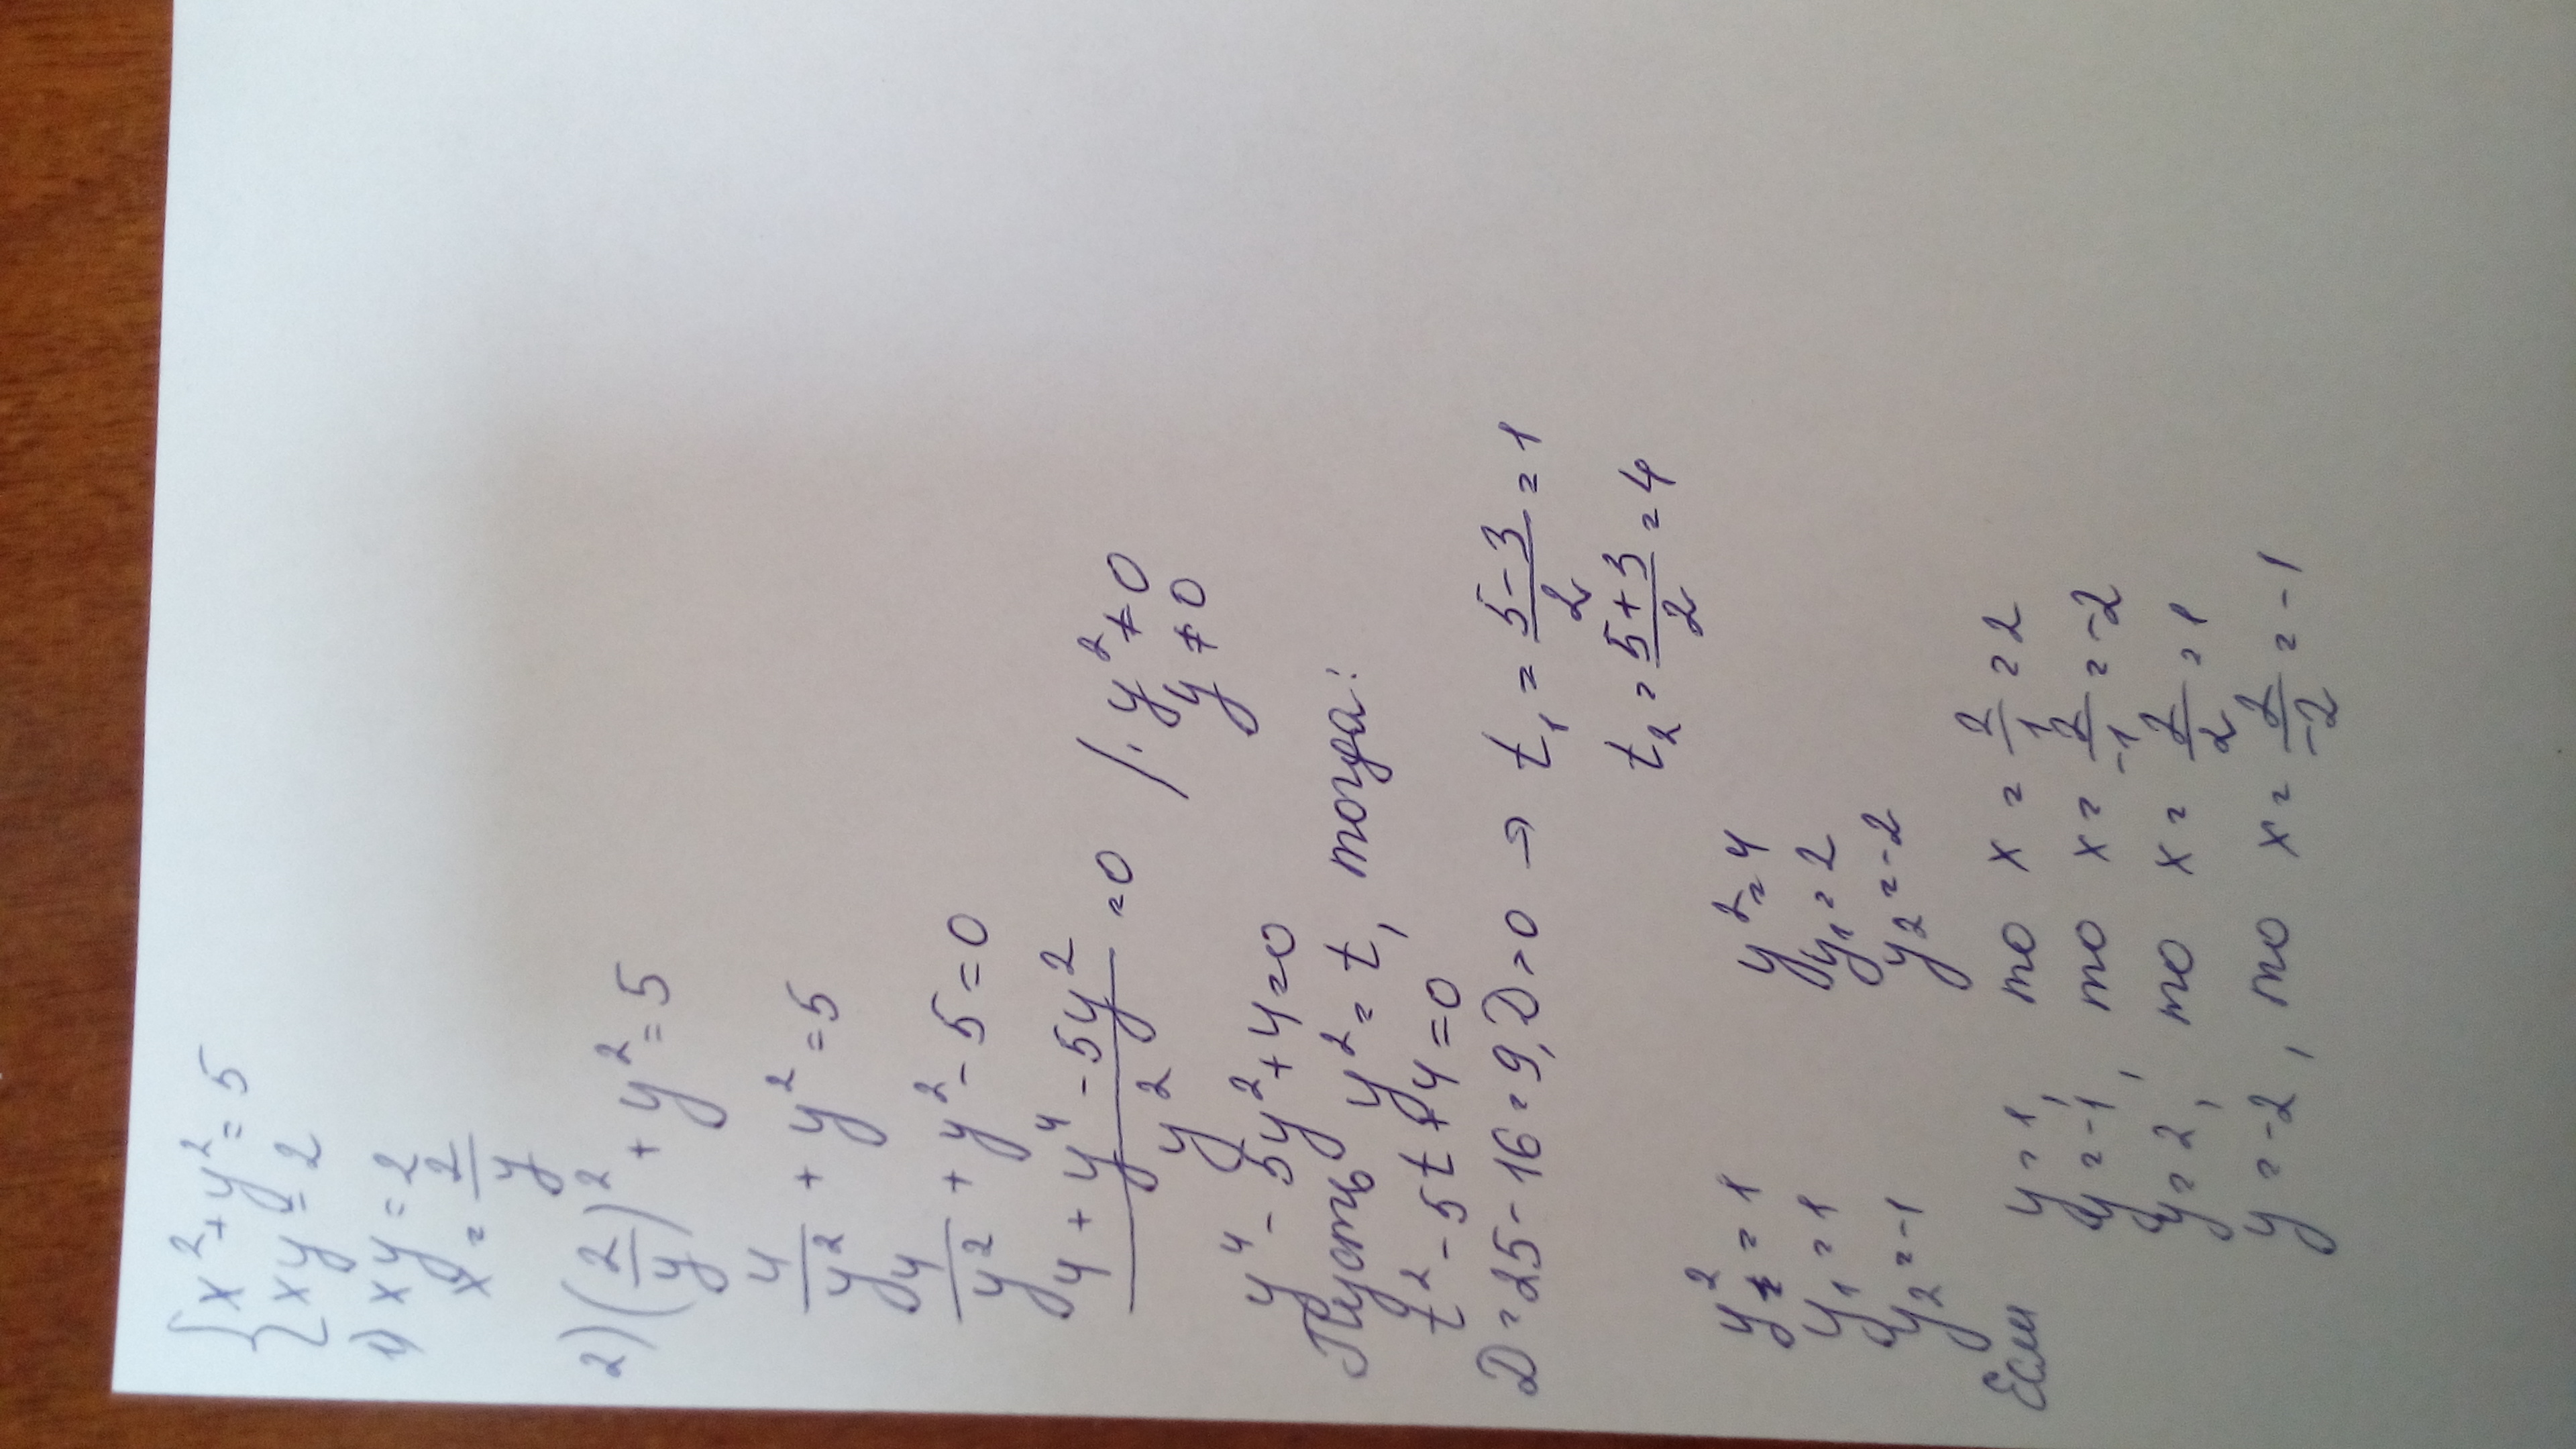 { x² + y² = 5
xy = 2
1) xy = 2
x = 2/y
2) (2/y)² + y² = 5
4/y² + y² = 5
4/y² + y² - 5 = 0
(4 + y⁴ - 5y²)/y² = 0 / · y² ≠ 0
y ≠ 0
y⁴ - 5y² + 4 = 0
Пусть y² = t, тогда:
t² - 5t + 4 = 0
D = 25 - 16 = 9, D > 0 → t₁ = (5-3)/2 = 1
t₂ = (5+3)/2 = 4
y² = 1 y² = 4
y₁ = 1 y₁ = 2
y₂ = -1 y₂ = -2
Если y = 1, то x = 2/1 = 2
y = -1, то x = 2/-1 = -2
y = 2, то x = 2/2 = 1
y = -2, то x = 2/-2 = -1